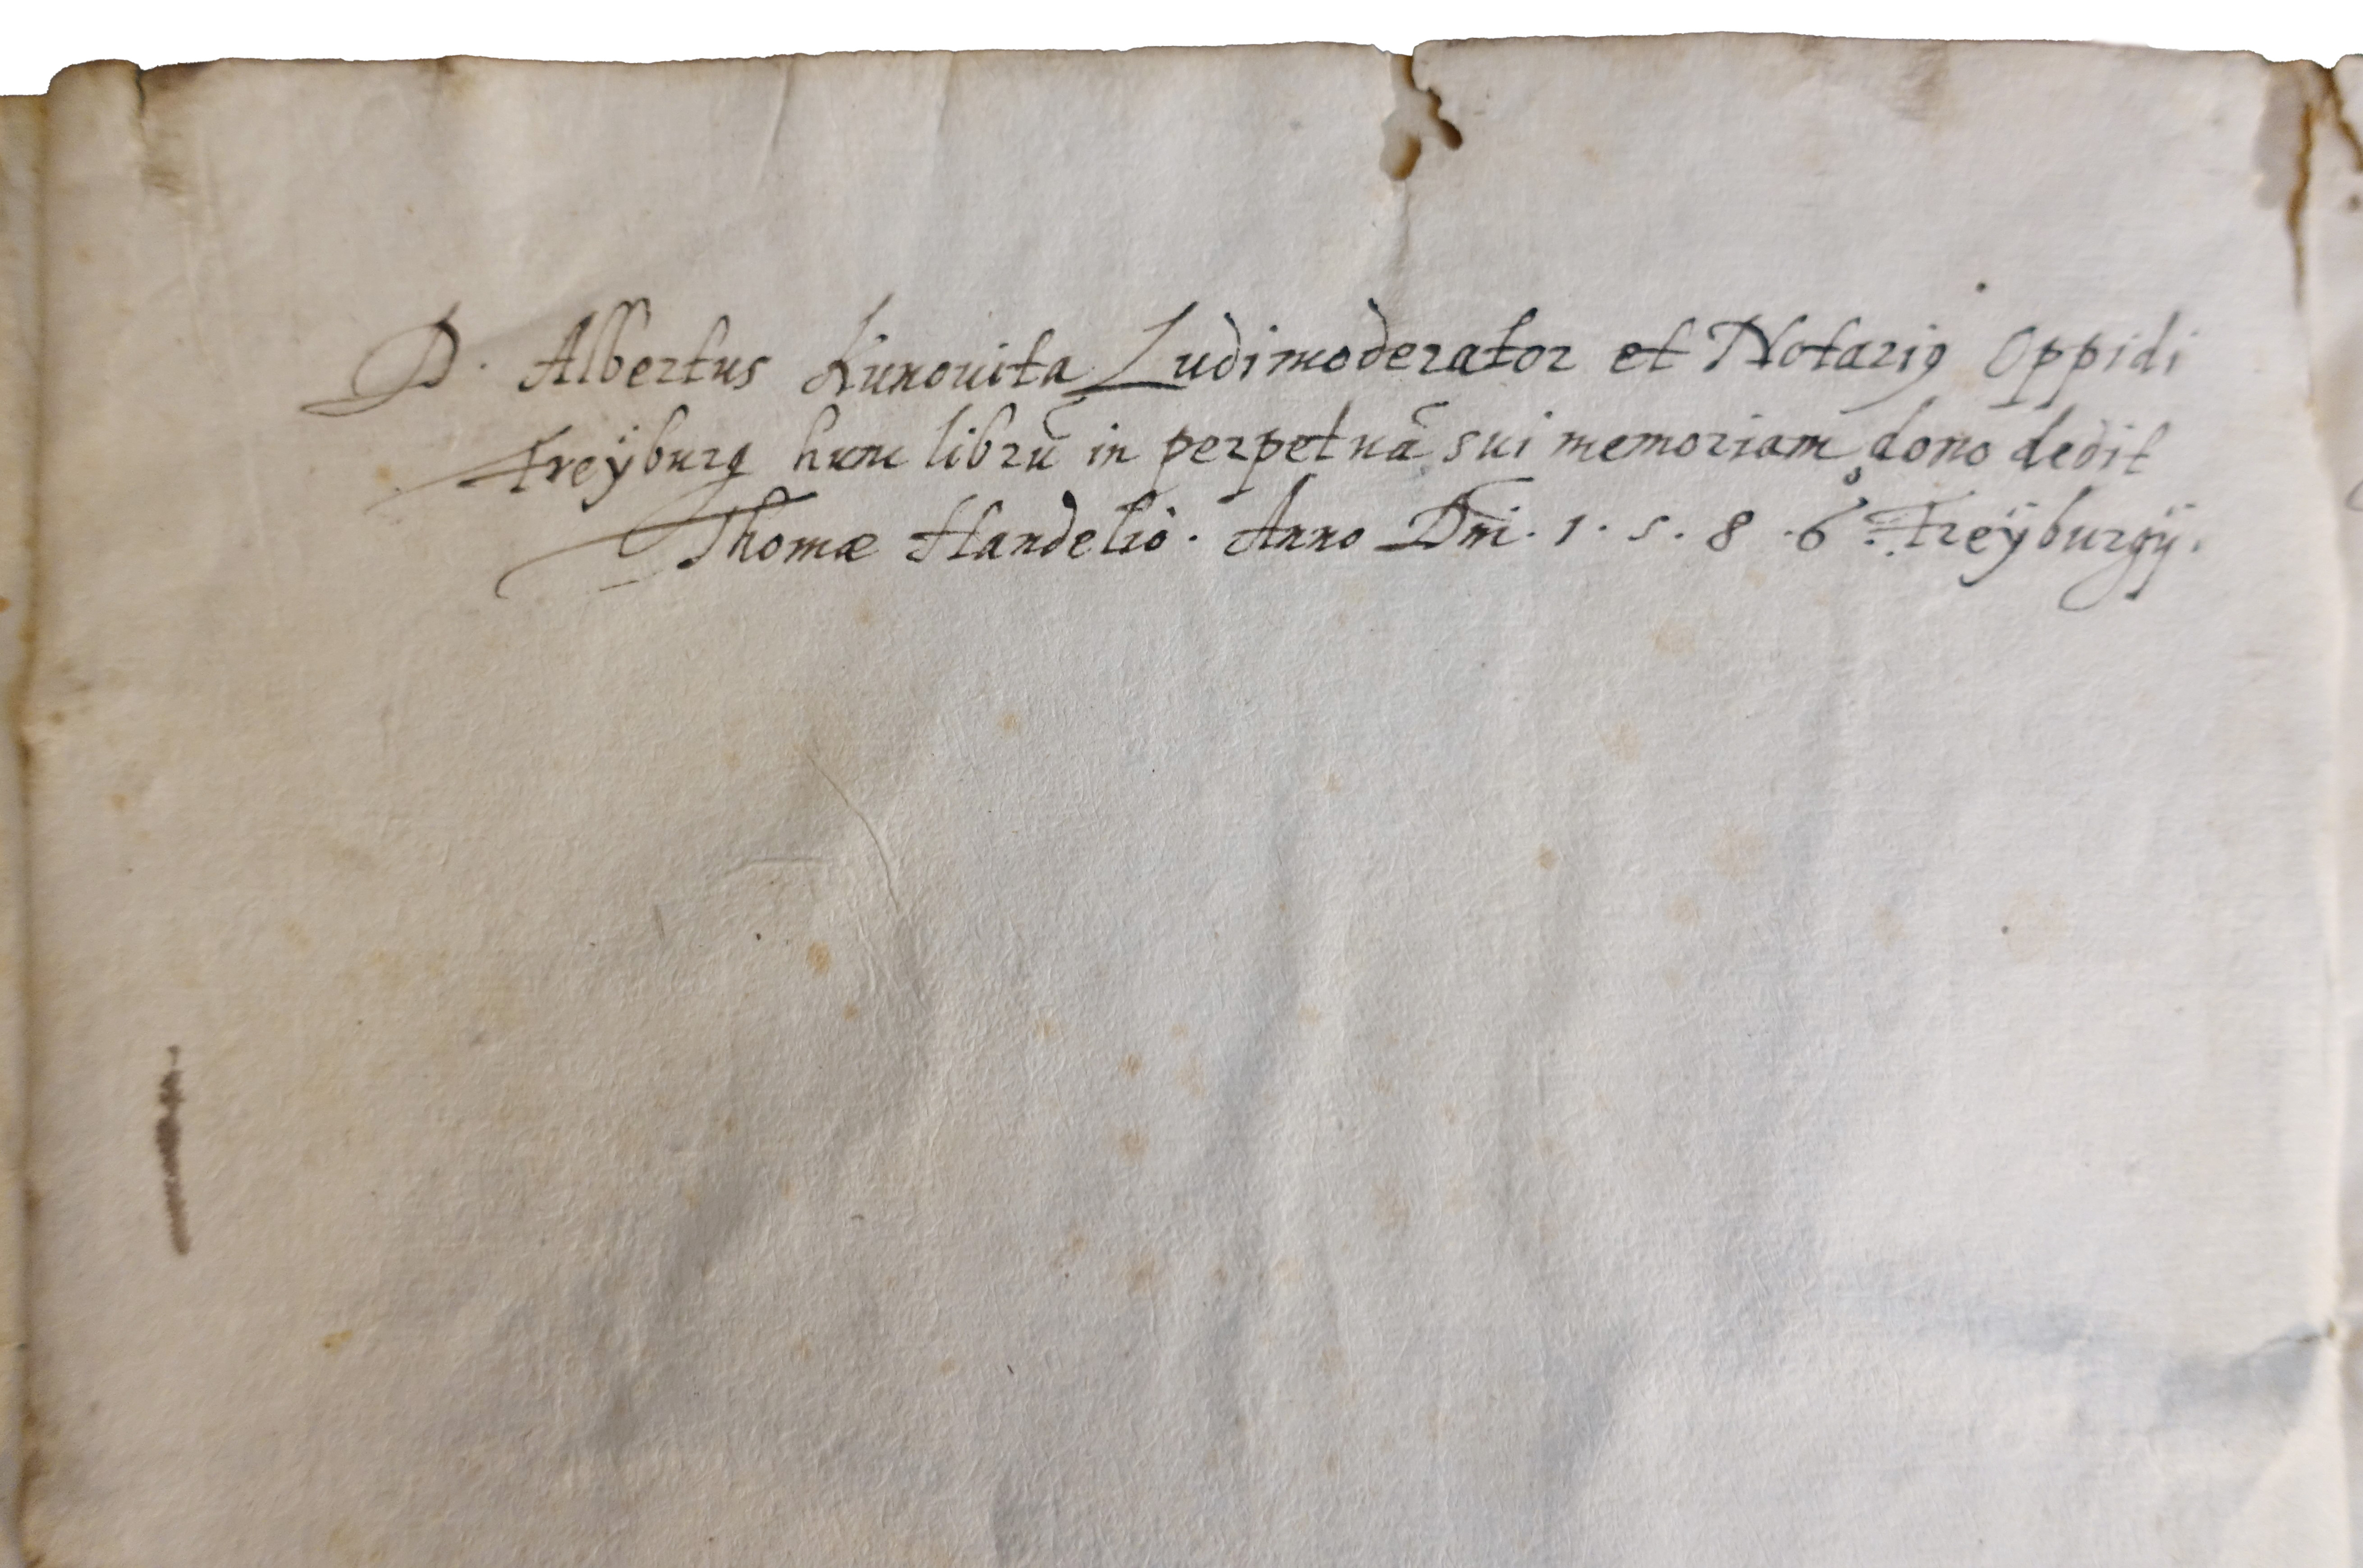 D. Albertus Kunouita Ludimoderator et Notariꝰ Oppidi
Freÿburg hunc librū in perpetuā sui memoriam dono dedit
Thomæ Handelio. Anno Dn̄i. 1. 5. 8. 6 Freÿburgÿ.